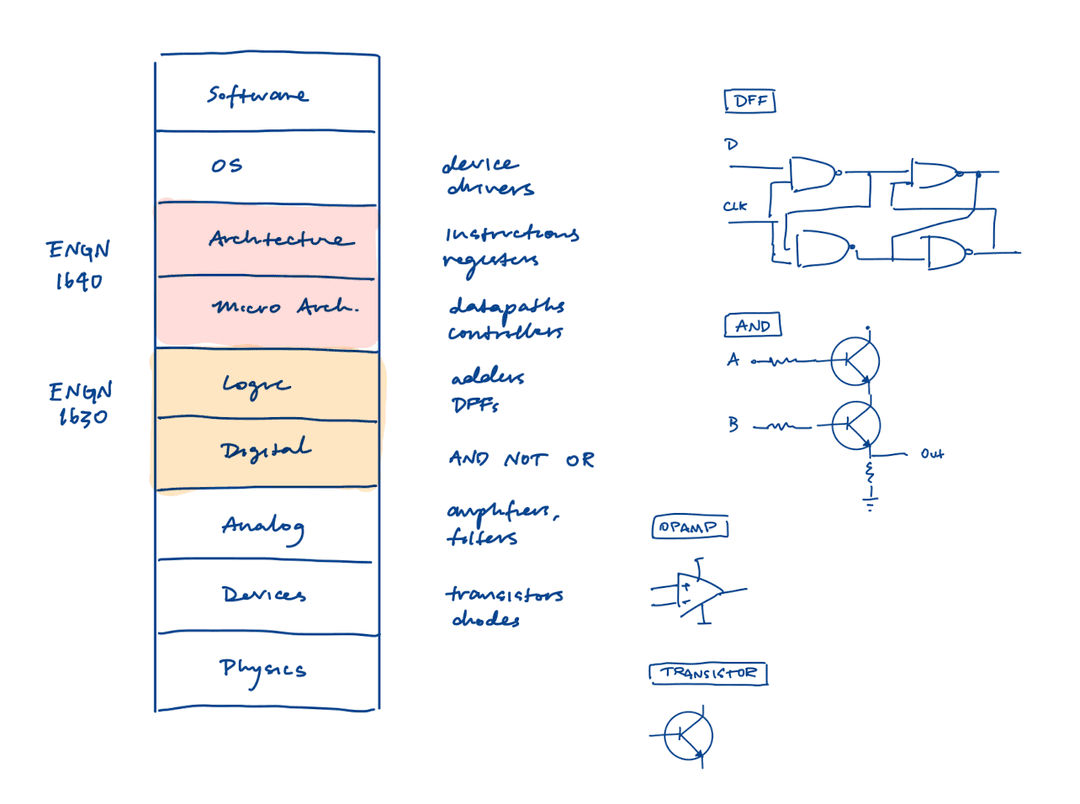 Software
OS
device
drivers
ENGN
1640
Architecture
instructions
registers
Micro Arch.
datapaths
controllers
ENGN
1630
Logic
adders
DFFs
Digital
AND NOT OR
Analog
amplifiers,
filters
Devices
transistors
diodes
Physics
DFF
D
CLK
AND
A
B
Out
OPAMP
+
-
TRANSISTOR